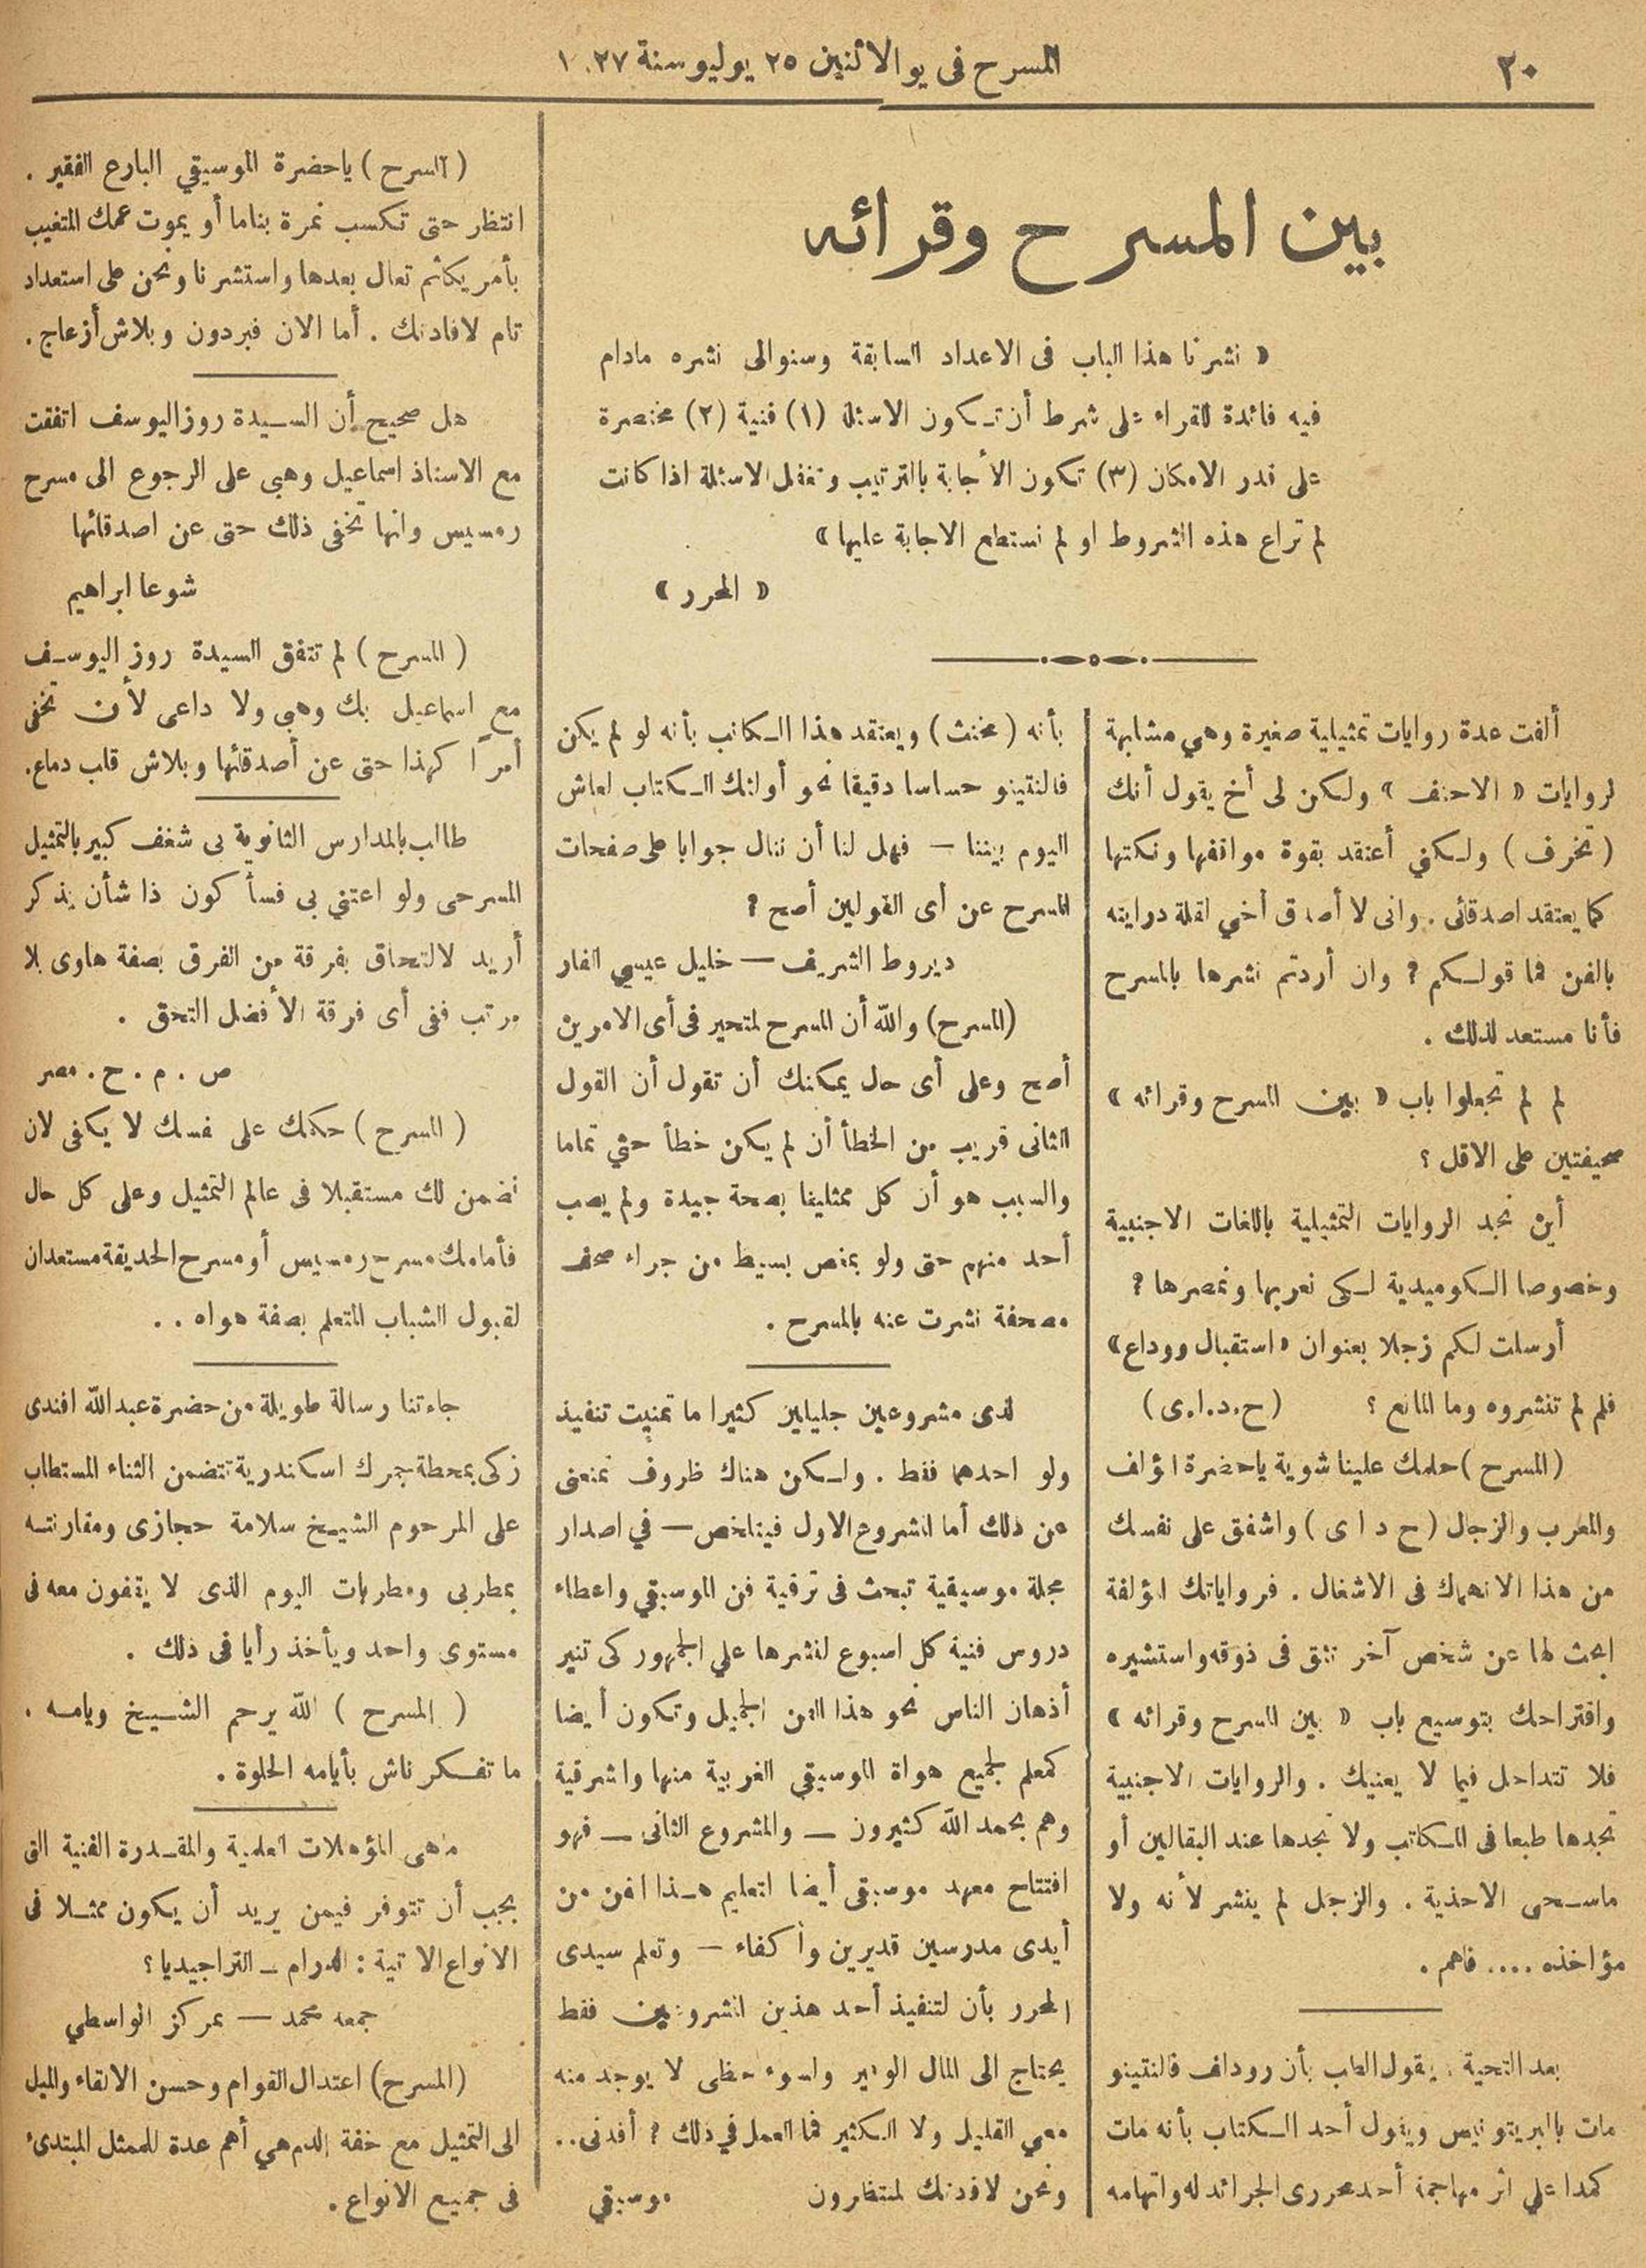 ٢٠
المسرح فى يو الاثنين ٢٥ يوليو سنة ١٠٢٧
بين المسرح وقرائه
« نشرنا هذا الباب فى الاعداد السابقة وسنوالى نشره مادام
فيه فائدة للقراء على شرط أن تكون الاسئلة (١) فنية (٢) مختصرة
على قدر الامكان (٣) تكون الأجابة بالترتيب وتغفل الاسئلة اذا كانت
لم تراع هذه الشروط او لم نستطع الاجابة عليها »
« المحرر »
ألفت عدة روايات تمثيلية صغيرة وهي مشابهة
لروايات « الاحنف » ولكن لى أخ يقول أنك
( تخرف ) ولكني أعتقد بقوة مواقفها ونكتها
كما يعتقد اصدقائى . وانى لا أصدق أخي لقلة درايته
بالفن فما قولكم ؟ وان أردتم نشرها بالمسرح
فأنا مستعد لذلك .
لم لم تجعلوا باب « بين المسرح وقرائه »
صحيفتين على الاقل ؟
أين نجد الروايات التمثيلية باللغات الاجنبية
وخصوصا الكوميدية لكى نعربها ونمصرها ؟
أرسلت لكم زجلا بعنوان « استقبال ووداع »
فلم لم تنشروه وما المانع ؟ (ح.د.ا.ى)
(المسرح) حلمك علينا شوية ياحضرة المؤلف
والمعرب والزجال (ح د ا ى) واشفق على نفسك
من هذا الانهماك فى الاشغال . فرواياتك المؤلفة
ابحث لها عن شخص آخر تثق فى ذوقه واستشيره
واقتراحك بتوسيع باب « بين المسرح وقرائه »
فلا تتداخل فيما لا يعنيك . والروايات الاجنبية
تجدها طبعا فى المكاتب ولا تجدها عند البقالين أو
ماسحى الاحذية . والزجل لم ينشر لأنه ولا
مؤاخذه .... فاهم .
بعد التحية . يقول الطب بأن رودلف فالنتينو
مات بالبريتونيتس ويقول أحد الكتاب بأنه مات
كمدا علي اثر مهاجمة أحد محررى الجرائد له واتهامه
بأنه (مخنث) ويعتقد هذا الكاتب بأنه لو لم يكن
فالنتينو حساسا دقيقا نحو أولئك الكتاب لعاش
اليوم بيننا — فهل لنا أن ننال جوابا على صفحات
المسرح عن أى القولين أصح ؟
ديروط الشريف — خليل عيسي الفار
(المسرح) والله أن المسرح لمتحير فى أى الامرين
أصح وعلى أى حال يمكنك أن تقول أن القول
الثانى قريب من الخطأ أن لم يكن خطأ حتي تماما
والسبب هو أن كل ممثلينا بصحة جيدة ولم يصب
أحد منهم حتى ولو بمغص بسيط من جراء صحف
مصحفة نشرت عنه بالمسرح .
لدى مشروعين جليلين كثيرا ما تمنيت تنفيذ
ولو احدهما فقط . ولكن هناك ظروف تمنعنى
عن ذلك أما المشروع الاول فيتلخص — في اصدار
مجلة موسيقية تبحث فى ترقية فن الموسيقي واعطاء
دروس فنية كل اسبوع لنشرها علي الجمهور كى تنير
أذهان الناس نحو هذا الفن الجميل وتكون أيضا
كمعلم لجميع هواة الموسيقي الغربية منها والشرقية
وهم بحمد الله كثيرون — والمشروع الثانى — فهو
افتتاح معهد موسيقى أيضا لتعليم هذا الفن من
أيدى مدرسين قديرين وأكفاء — وتعلم سيدى
المحرر بأن لتنفيذ أحد هذين المشروعين فقط
يحتاج الى المال الوفير ولسوء حظى لا يوجد منه
معي القليل ولا الكثير فما العمل في ذلك ؟ أفدنى..
ونحن لافادتك لمنتظرون موسيقي
( المسرح ) ياحضرة الموسيقي البارع الفقير .
انتظر حتى تكسب نمرة بناما أو يموت عمك المتغيب
بأمريكا ثم تعال بعدها واستشرنا ونحن على استعداد
تام لافادتك . أما الان فبردون وبلاش أزعاج .
هل صحيح أن السيدة روز اليوسف اتفقت
مع الاستاذ اسماعيل وهبى على الرجوع الى مسرح
رمسيس وانها تخفى ذلك حتى عن اصدقائها
شوعا ابراهيم
( المسرح ) لم تتفق السيدة روز اليوسف
مع اسماعيل بك وهبي ولا داعى لأن تخفى
أمرًا كهذا حتى عن أصدقائها وبلاش قلب دماغ.
طالب بالمدارس الثانوية بى شغف كبير بالتمثيل
المسرحى ولو اعتني بى فسأ كون ذا شأن يذكر
أريد لالتحاق بفرقة من الفرق بصفة هاوى بلا
مرتب ففى أى فرقة الأفضل التحق .
ص . م . ح . مصر
( المسرح ) حكمك على نفسك لا يكفى لان
نضمن لك مستقبلا فى عالم التمثيل وعلى كل حال
فأمامك مسرح رمسيس أو مسرح الحديقة مستعدان
لقبول الشباب المتعلم بصفة هواه . .
جاءتنا رسالة طويلة من حضرة عبدالله افندى
زكى بمحطة جمرك اسكندرية تتضمن الثناء المستطاب
على المرحوم الشيخ سلامة حجازى ومقارنته
بمطربى ومطربات اليوم الذى لا يقفون معه فى
مستوى واحد ويأخذ رأيا فى ذلك .
( المسرح ) الله يرحم الشيخ ويامه .
ما تفكر ناش بأيامه الحلوة .
ماهى المؤهلات العلمية والمقدرة الفنية التى
يجب أن تتوفر فيمن يريد أن يكون ممثلا فى
الانواع الاتية : الدرام — التراجيديا ؟
جمعه محمد — بمركز الواسطي
(المسرح) اعتدال القوام وحسن الالقاء والميل
الى التمثيل مع خفة الدم هي أهم عدة للممثل المبتدىء
فى جميع الانواع .